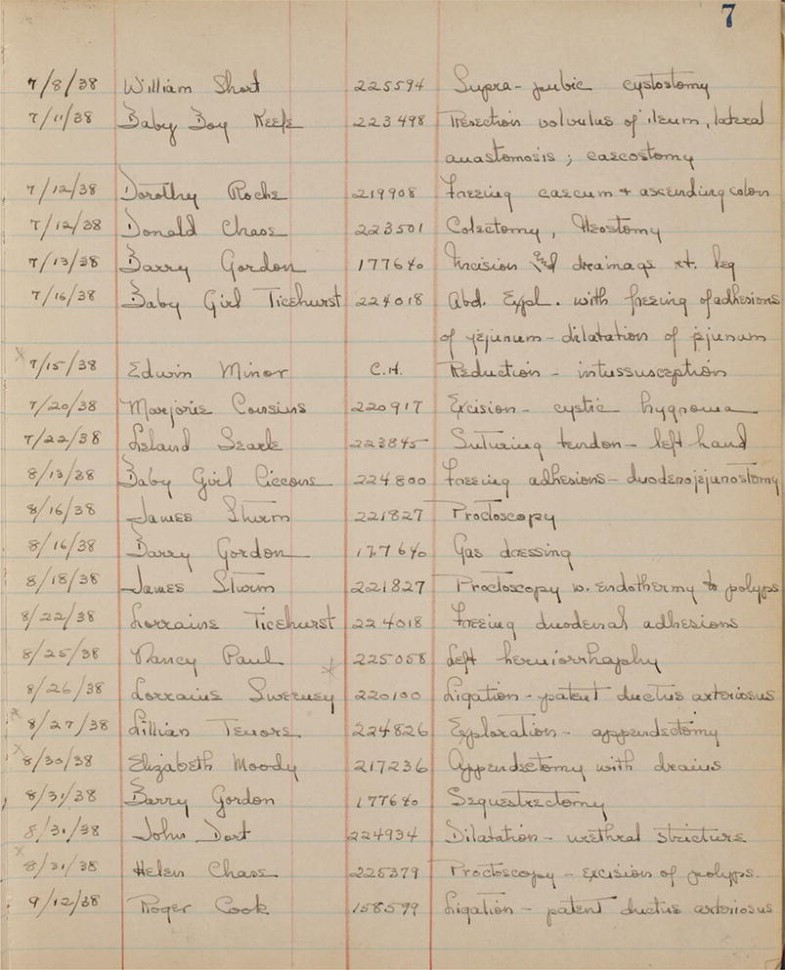 7
7/8/38 William Short 225594 Supra-pubic cystostomy
7/11/38 Baby Boy Keefe 223498 Resection volvulus of ileum, lateral
anastomosis; caecostomy
7/12/38 Dorothy Roche 219908 Freeing caecum + ascending colon
7/12/38 Donald Chase 223501 Colectomy, Ileostomy
7/13/38 Barry Gordon 177640 Incision and drainage rt. leg
7/16/38 Baby Girl Ticehurst 224018 Abd. Expl. with freeing of adhesions
of jejunum - dilatation of jejunum
x 7/15/38 Edwin Minor C.H. Reduction - intussusception
7/20/38 Marjorie Cousins 220917 Excision - cystic hygroma
7/22/38 Leland Searle 223845 Suturing tendon - left hand
8/13/38 Baby Girl 224800 Freeing adhesions - duodenojejunostomy
8/16/38 James Sturm 221827 Proctoscopy
8/16/38 Barry Gordon 177640 Gas dressing
8/18/38 James Sturm 221827 Proctoscopy w. endothermy to polyps
8/22/38 Lorraine Ticehurst 224018 Freeing duodenal adhesions
8/25/38 Nancy Paul 225058 Left herniorrhaphy
8/26/38 Lorraine Sweeney 220100 Ligation - patent ductus arteriosus
x 8/27/38 Lillian 224826 Exploration - appendectomy
x 8/30/38 Elizabeth Moody 217236 Appendectomy with drains
8/31/38 Barry Gordon 177640 Sequestrectomy
8/31/38 John Dort 224934 Dilatation - urethral stricture
x 8/31/38 Helen Chase 225379 Proctoscopy - excision of polyps.
9/12/38 Roger Cook 158599 Ligation - patent ductus arteriosus